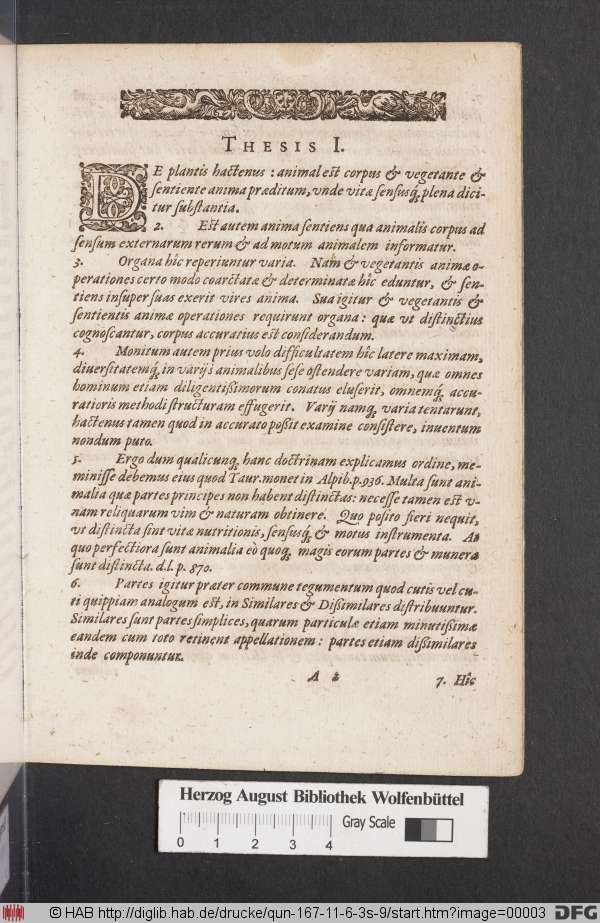 THESIS I.
DE plantis hactenus : animal est corpus & vegetante &
sentiente anima præditum, vnde vitæ sensusq́; plena dici-
tur substantia.
2. Est autem anima sentiens qua animalis corpus ad
sensum externarum rerum & ad motum animalem informatur.
3. Organa hîc reperiuntur varia. Nam & vegetantis animæ o-
perationes certo modo coarctatæ & determinatæ hîc eduntur, & sen-
tiens insuper suas exerit vires anima. Sua igitur & vegetantis &
sentientis animæ operationes requirunt organa : quæ vt distinctius
cognoscantur, corpus accuratius est considerandum.
4. Monitum autem prius volo difficultatem hîc latere maximam,
diuersitatemq́; in varijs animalibus sese ostendere variam, quæ omnes
hominum etiam diligentißimorum conatus eluserit, omnemq́; accu-
ratioris methodi structuram effugerit. Varij namq; varia tentarunt,
hactenus tamen quod in accurato poßit examine consistere, inuentum
nondum puto.
5. Ergo dum qualicunq; hanc doctrinam explicamus ordine, me-
minisse debemus eius quod Taur. monet in Alpib. p. 936. Multa sunt ani-
malia quæ partes principes non habent distinctas: necesse tamen est v-
nam reliquarum vim & naturam obtinere. Quo posito fieri nequit,
vt distincta sint vitæ nutritionis, sensusq́; & motus instrumenta. At
quo perfectiora sunt animalia eò quoq; magis eorum partes & munera
sunt distincta. d. l. p. 870.
6. Partes igitur præter commune tegumentum quod cutis vel cu-
ti quippiam analogum est, in Similares & Dißimilares distribuuntur.
Similares sunt partes simplices, quarum particulæ etiam minutißimæ
eandem cum toto retinent appellationem : partes etiam dißimilares
inde componuntur.
A 2 7. Hîc
Herzog August Bibliothek Wolfenbüttel
0 1 2 3 4 Gray Scale
© HAB http://diglib.hab.de/drucke/qun-167-11-6-3s-9/start.htm?image=00003 DFG